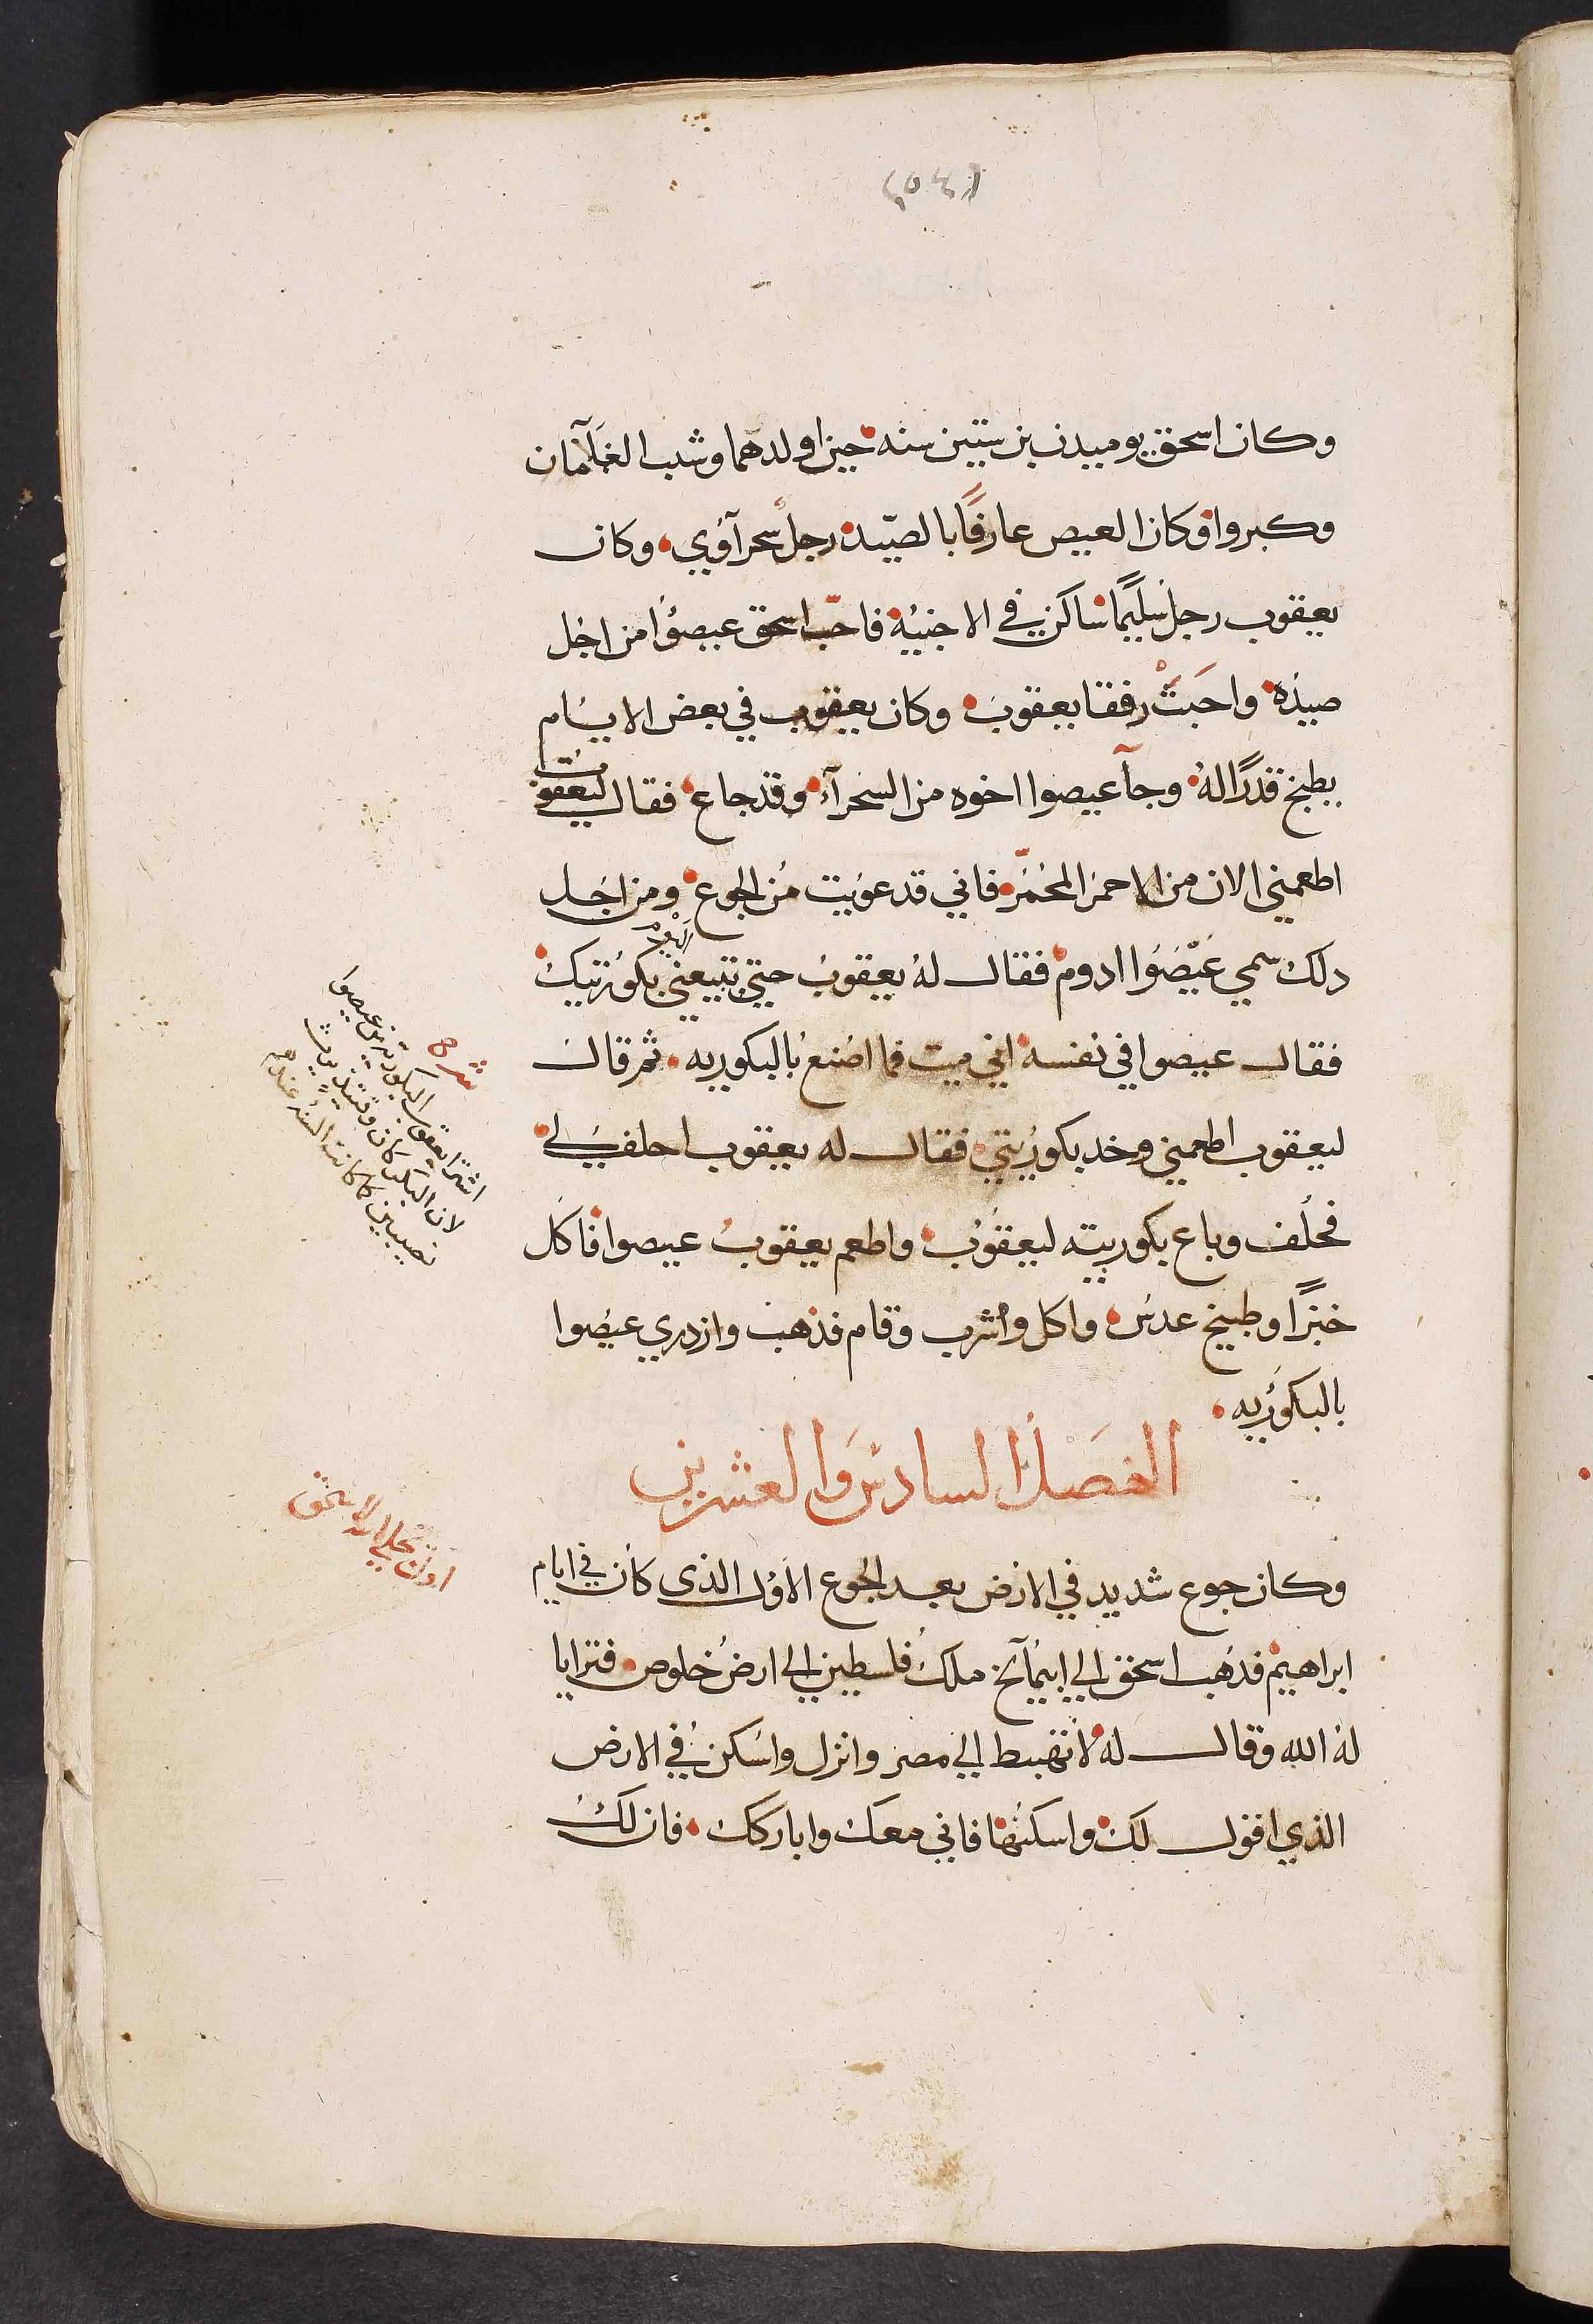 (٥٤)
وكان اسحق يوميدن بن ستين سنه حين اولدهما وشب الغلامان
وكبروا وكان العيص عارفًا بالصيد رجل سحرآوي وكان
يعقوب رجل سليمًا ساكن في الاخبيه فاحب اسحق عيصوا من اجل
صيده واحبت رفقا يعقوب وكان يعقوب في بعض الايام
يطبخ قدرًا له وجآ عيصوا اخوه من السحرآ وقد جاع فقال ليعقوب
اطعمني الان من الاحمر المحمر فاني قد عويت من الجوع ومن اجل
دلك سمي عيصوا ادوم فقال له يعقوب حتي تبيعني بكورتيك
فقال عيصوا في نفسه اني ميت فما اصنع بالبكوريه ثم قال
ليعقوب اطعمني وخد بكوريتي فقال له يعقوب احلف لي
فحلف وباع بكوريته ليعقوب واطعم يعقوب عيصوا فاكل
خبزًا وطبيخ عدس واكل وشرب وقام فذهب وازدري عيصوا
بالبكوريه
الفصل السادس والعشرين
وكان جوع شديد في الارض بعد الجوع الاول الذى كان في ايام
ابراهيم فذهب اسحق الي ابيمآلخ ملك فلسطين الي ارض خلوص فترايا
له الله وقال له لا تهبط الي مصر وانزل واسكن في الارض
الذي اقول لك واسكنها فاني معك واباركك فان لك
شرح
اشترا يعقوب البكوريه من عيصو
لان البكر كان وقتيذ يرث
نصيبين كما كانت السنه عندهم
اول تجلي الله لاسحق